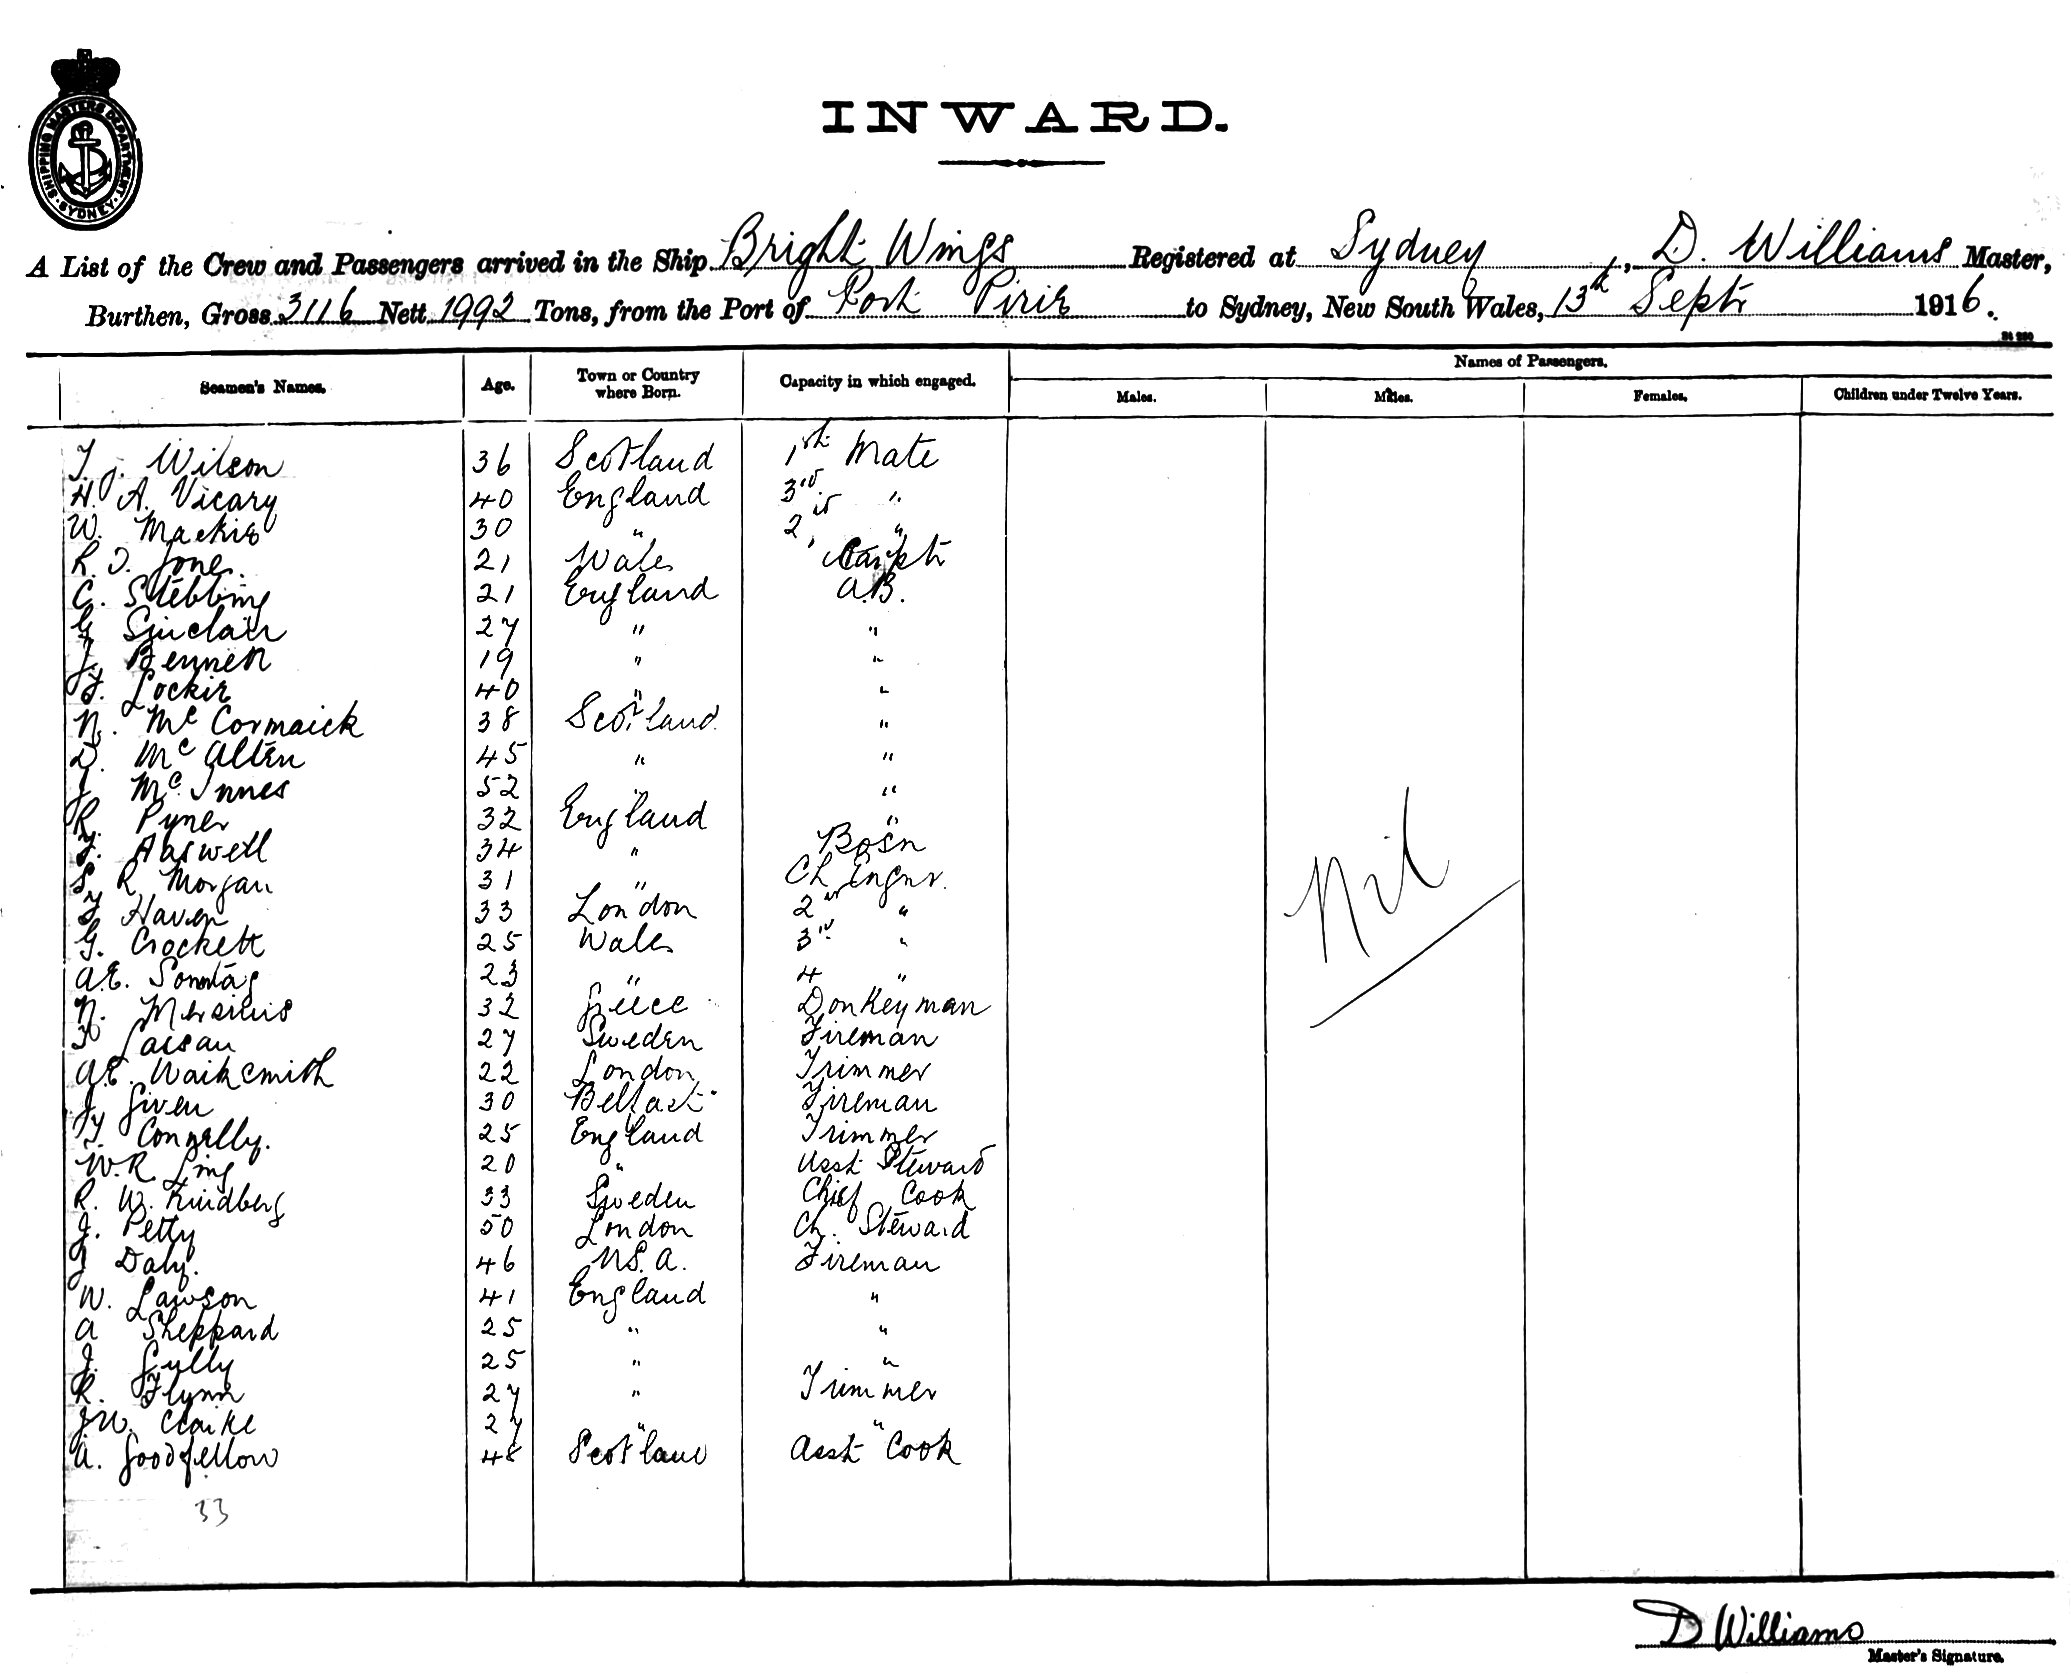 SHIPPING MASTERS DEPARTMENT SYDNEY
INWARD.
A List of the Crew and Passengers arrived in the Ship Bright Wings Registered at Sydney, D. Williams Master,
Burthen, Gross 3116 Nett 1992 Tons, from the Port of Port Pirie to Sydney, New South Wales, 13th Septr 1916.
Names of Passengers.
Seamen's Names. Age. Town or Country where Born. Capacity in which engaged. Males. Males. Females. Children under Twelve Years.
Wilson 36 Scotland 1st Mate
H. A. Vicary 40 England 3rd "
W. Mackie 30 " 2 "
Jones 21 Wales Carptr
C. Stebbing 21 England A.B.
G Sinclair 27 " "
J. Bennett 19 " "
Lockie 40 " "
N. Mc Cormaick 38 Scotland "
D. Mc 45 " "
J Mc Innes 52 " "
R. Pyner 32 England "
34 " Bosn
R Morgan 31 " Ch Engnr.
Haven 33 London 2nd "
G. Crockett 25 Wales 3rd "
A.E. Sonntag 23 " 4 "
N. 32 Greece Donkeyman
27 Sweden Fireman
A.E. 22 London Trimmer
J Given 30 Belfast Fireman
Connelly. 25 England Trimmer
W.R Ling 20 " Asst Steward
R. W. 33 Sweden Chief Cook
J. Petty 50 London Ch. Steward
J Daly. 46 U.S.A. Fireman
W. Lawson 41 England "
A Sheppard 25 " "
J. Gully 25 " "
R. Flynn 27 " Trimmer
J W. Clarke 27 " "
A. Goodfellow 48 Scotland Asst Cook
Nil
33
D Williams
Master's Signature.